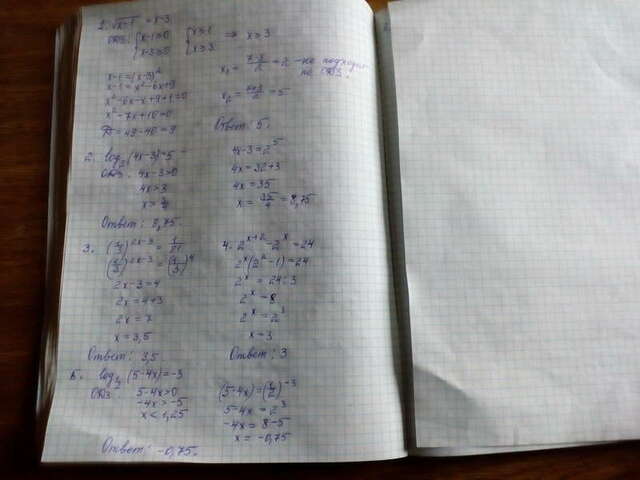 1. √x-1 = x-3
ОДЗ: { x-1≥0 { x≥1 ⇒ x≥3
x-3≥0 x≥3
x-1=(x-3)²
x-1=x²-6x+9
x²-6x-x+9+1=0
x²-7x+10=0
D=49-40=9
x₁ = (7-3)/2 = 2 - не подходит по ОДЗ.
x₂ = (7+3)/2 = 5
Ответ: 5.
2. log₂(4x-3)=5
ОДЗ: 4x-3>0
4x>3
x>3/4
4x-3=2⁵
4x=32+3
4x=35
x=35/4=8,75
Ответ: 8,75.
3. (1/3)^2x-3 =
(1/3)^2x-3 = (1/3)⁴
2x-3=4
2x=4+3
2x=7
x=3,5
Ответ: 3,5
4. 2^x+2 - 2^x = 24
2^x(2²-1)=24
2^x = 24:3
2^x = 8
2^x = 2³
x=3
Ответ: 3
5. log½(5-4x)=-3
ОДЗ: 5-4x>0
-4x>-5
x<1,25
(5-4x)=(1/2)⁻³
5-4x=2³
-4x=8-5
x=-0,75
Ответ: -0,75.